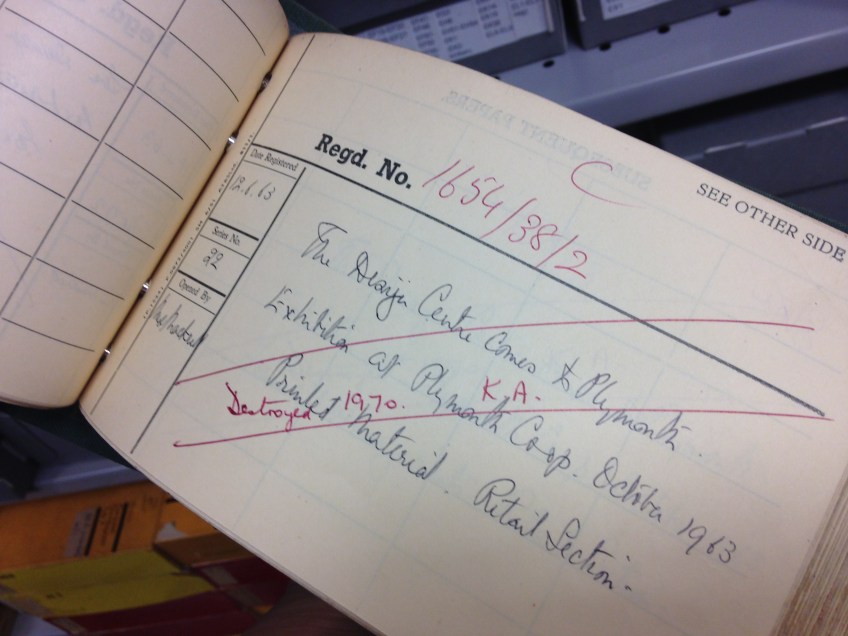 SUBSEQUENT PAPERS.
SEE OTHER SIDE
C
Regd. No. 1654/38/2
Date Registered
12.6.63
Series No.
22
Opened By
The Design Centre Comes to Plymouth.
Exhibition at Plymouth Co-op. October 1963
Printed Material. Retail Section.
K.A.
Destroyed 1970.